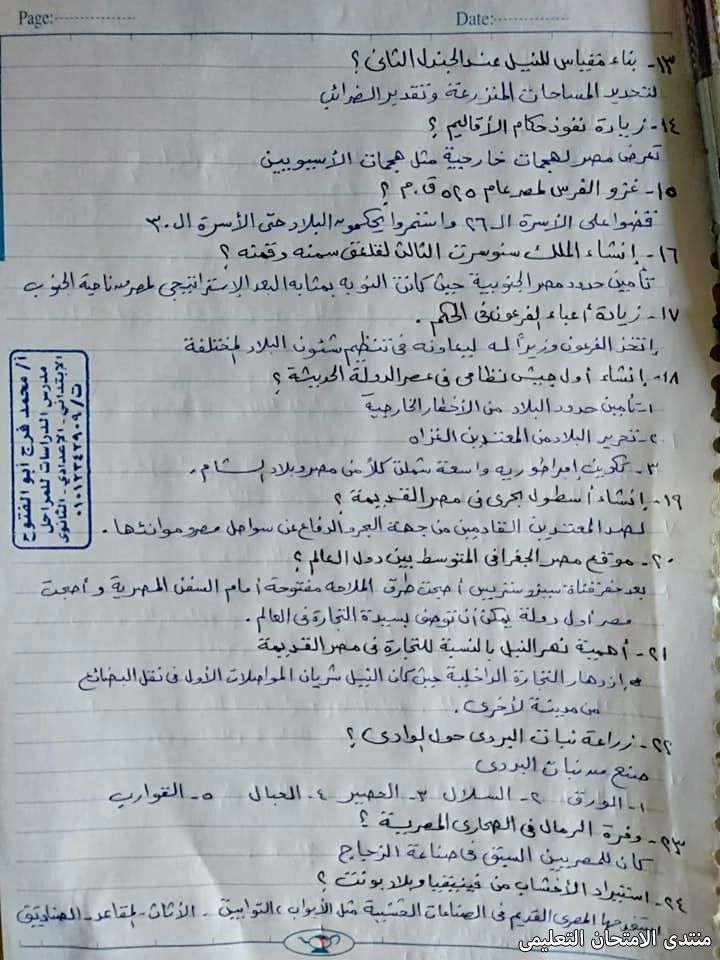 Page: Date:
١٣- بناء مقياس للنيل عند الجندل الثانى ؟
لتحديد المساحات المنزرعة وتقدير الضرائب
١٤- زيادة نفوذ حكام الأقاليم ؟
تعرض مصر لهجمات خارجية مثل هجمات الأسيويين
١٥- غزو الفرس لمصر عام ٥٢٥ ق.م ؟
قضوا على الأسرة الـ ٢٦ واستمروا يحكمون البلاد حتى الأسرة الـ ٣٠
١٦- إنشاء الملك سنوسرت الثالث لقلعتى سمنه وقمنه ؟
تأمين حدود مصر الجنوبية حيث كانت النوبه بمثابه البعد الإستراتيجي لمصر من ناحية الجنوب
١٧- زيادة أعباء الفرعون فى الحكم .
إتخذ الفرعون وزيراً له ليعاونه فى تنظيم شئون البلاد المختلفة
١٨- إنشاء أول جيش نظامى فى عصر الدولة الحديثة ؟
١- تأمين حدود البلاد من الأخطار الخارجية
٢- تحرير البلاد من المعتدين الغزاه
٣- تكوين إمبراطوريه واسعة شملت كلاً من مصر وبلاد الشام .
١٩- إنشاء أسطول بحرى فى مصر القديمة ؟
لصد المعتدين القادمين من جهة البحر والدفاع عن سواحل مصر وموانئها .
٢٠- موقع مصر الجغرافى المتوسط بين دول العالم ؟
بعد حفر قناة سيزوستريس أصبحت طرق الملاحه مفتوحة أمام السفن المصرية وأصبحت
مصر أول دولة يمكن أن توصف بسيدة التجارة فى العالم .
٢١- أهمية نهر النيل بالنسبة للتجارة فى مصر القديمة
إزدهار التجارة الداخلية حيث كان النيل شريان المواصلات الأول فى نقل البضائع
من مدينة لأخرى .
٢٢- زراعة نبات البردى حول الوادى ؟
صنع من نبات البردى
١- الورق ٢- السلال ٣- الحصير ٤- الحبال ٥- القوارب
٢٣- وفرة الرمال فى الصحارى المصرية ؟
كان للمصريين السبق فى صناعة الزجاج
٢٤- استيراد الأخشاب من فينيقيا وبلاد بونت ؟
استخدمها المصرى القديم فى الصناعات الخشبية مثل الأبواب، التوابيت - الأثاث - المقاعد - الصناديق
أ/ محمد فرج أبو الفتوح
مدرس الدراسات للمراحل
الإبتدائي - الإعدادي - الثانوى
ت/ ٠١٠١٢٣٤٢٩٠٩
منتدى الامتحان التعليمى